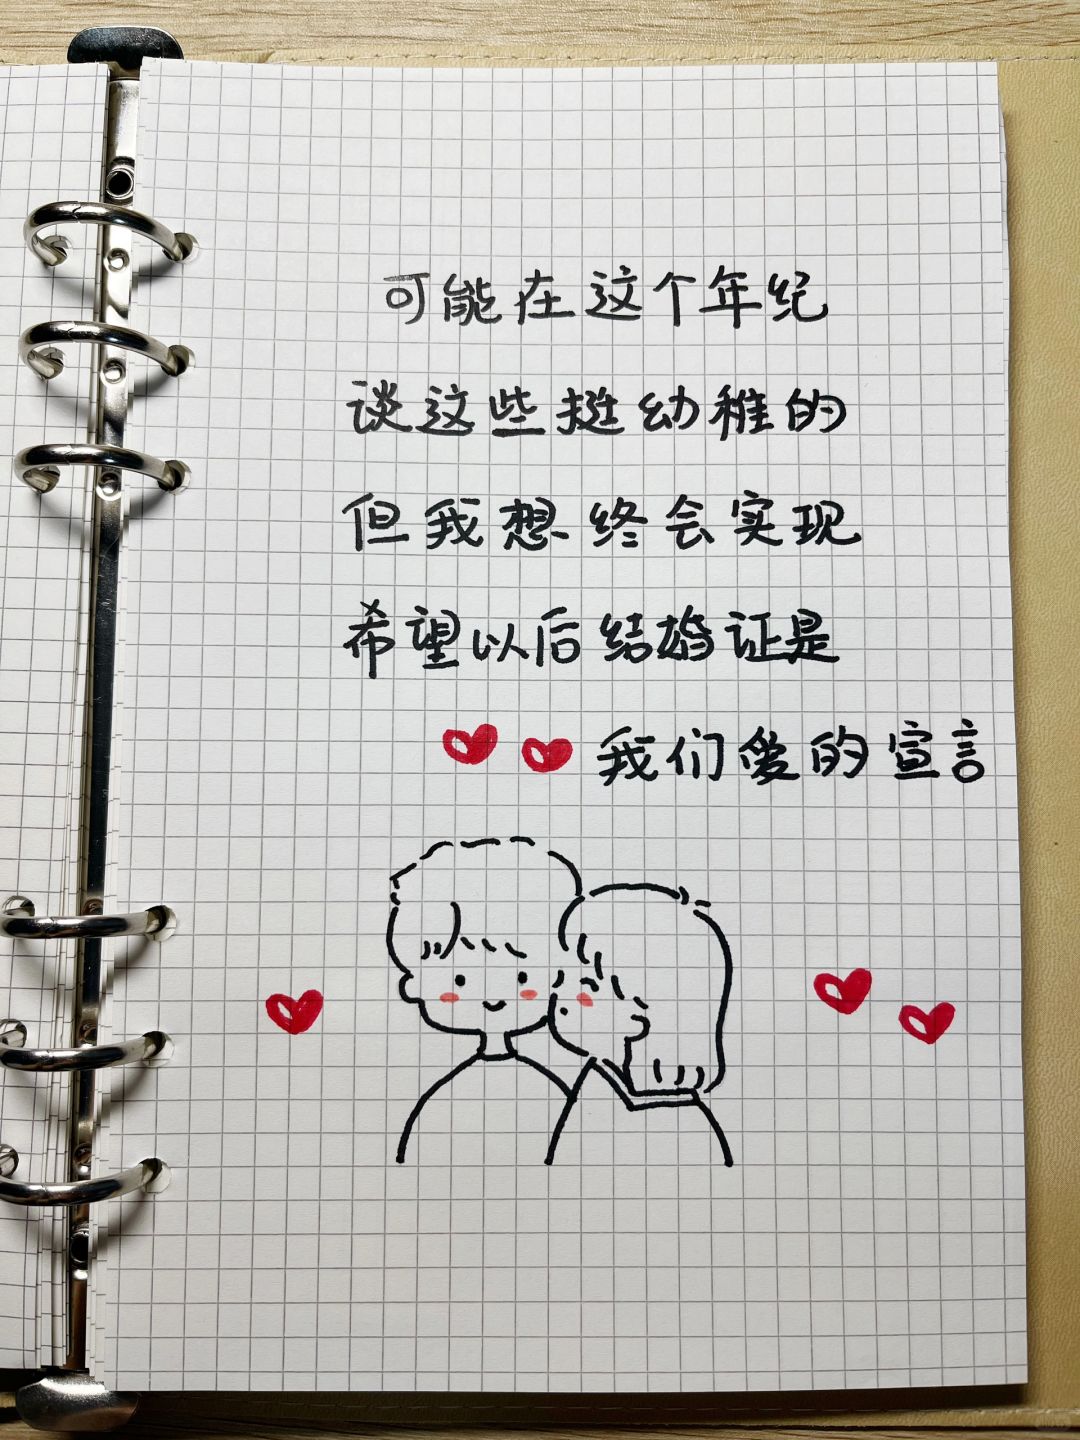 可能在这个年纪
谈这些挺幼稚的
但我想终会实现
希望以后结婚证是
我们爱的宣言